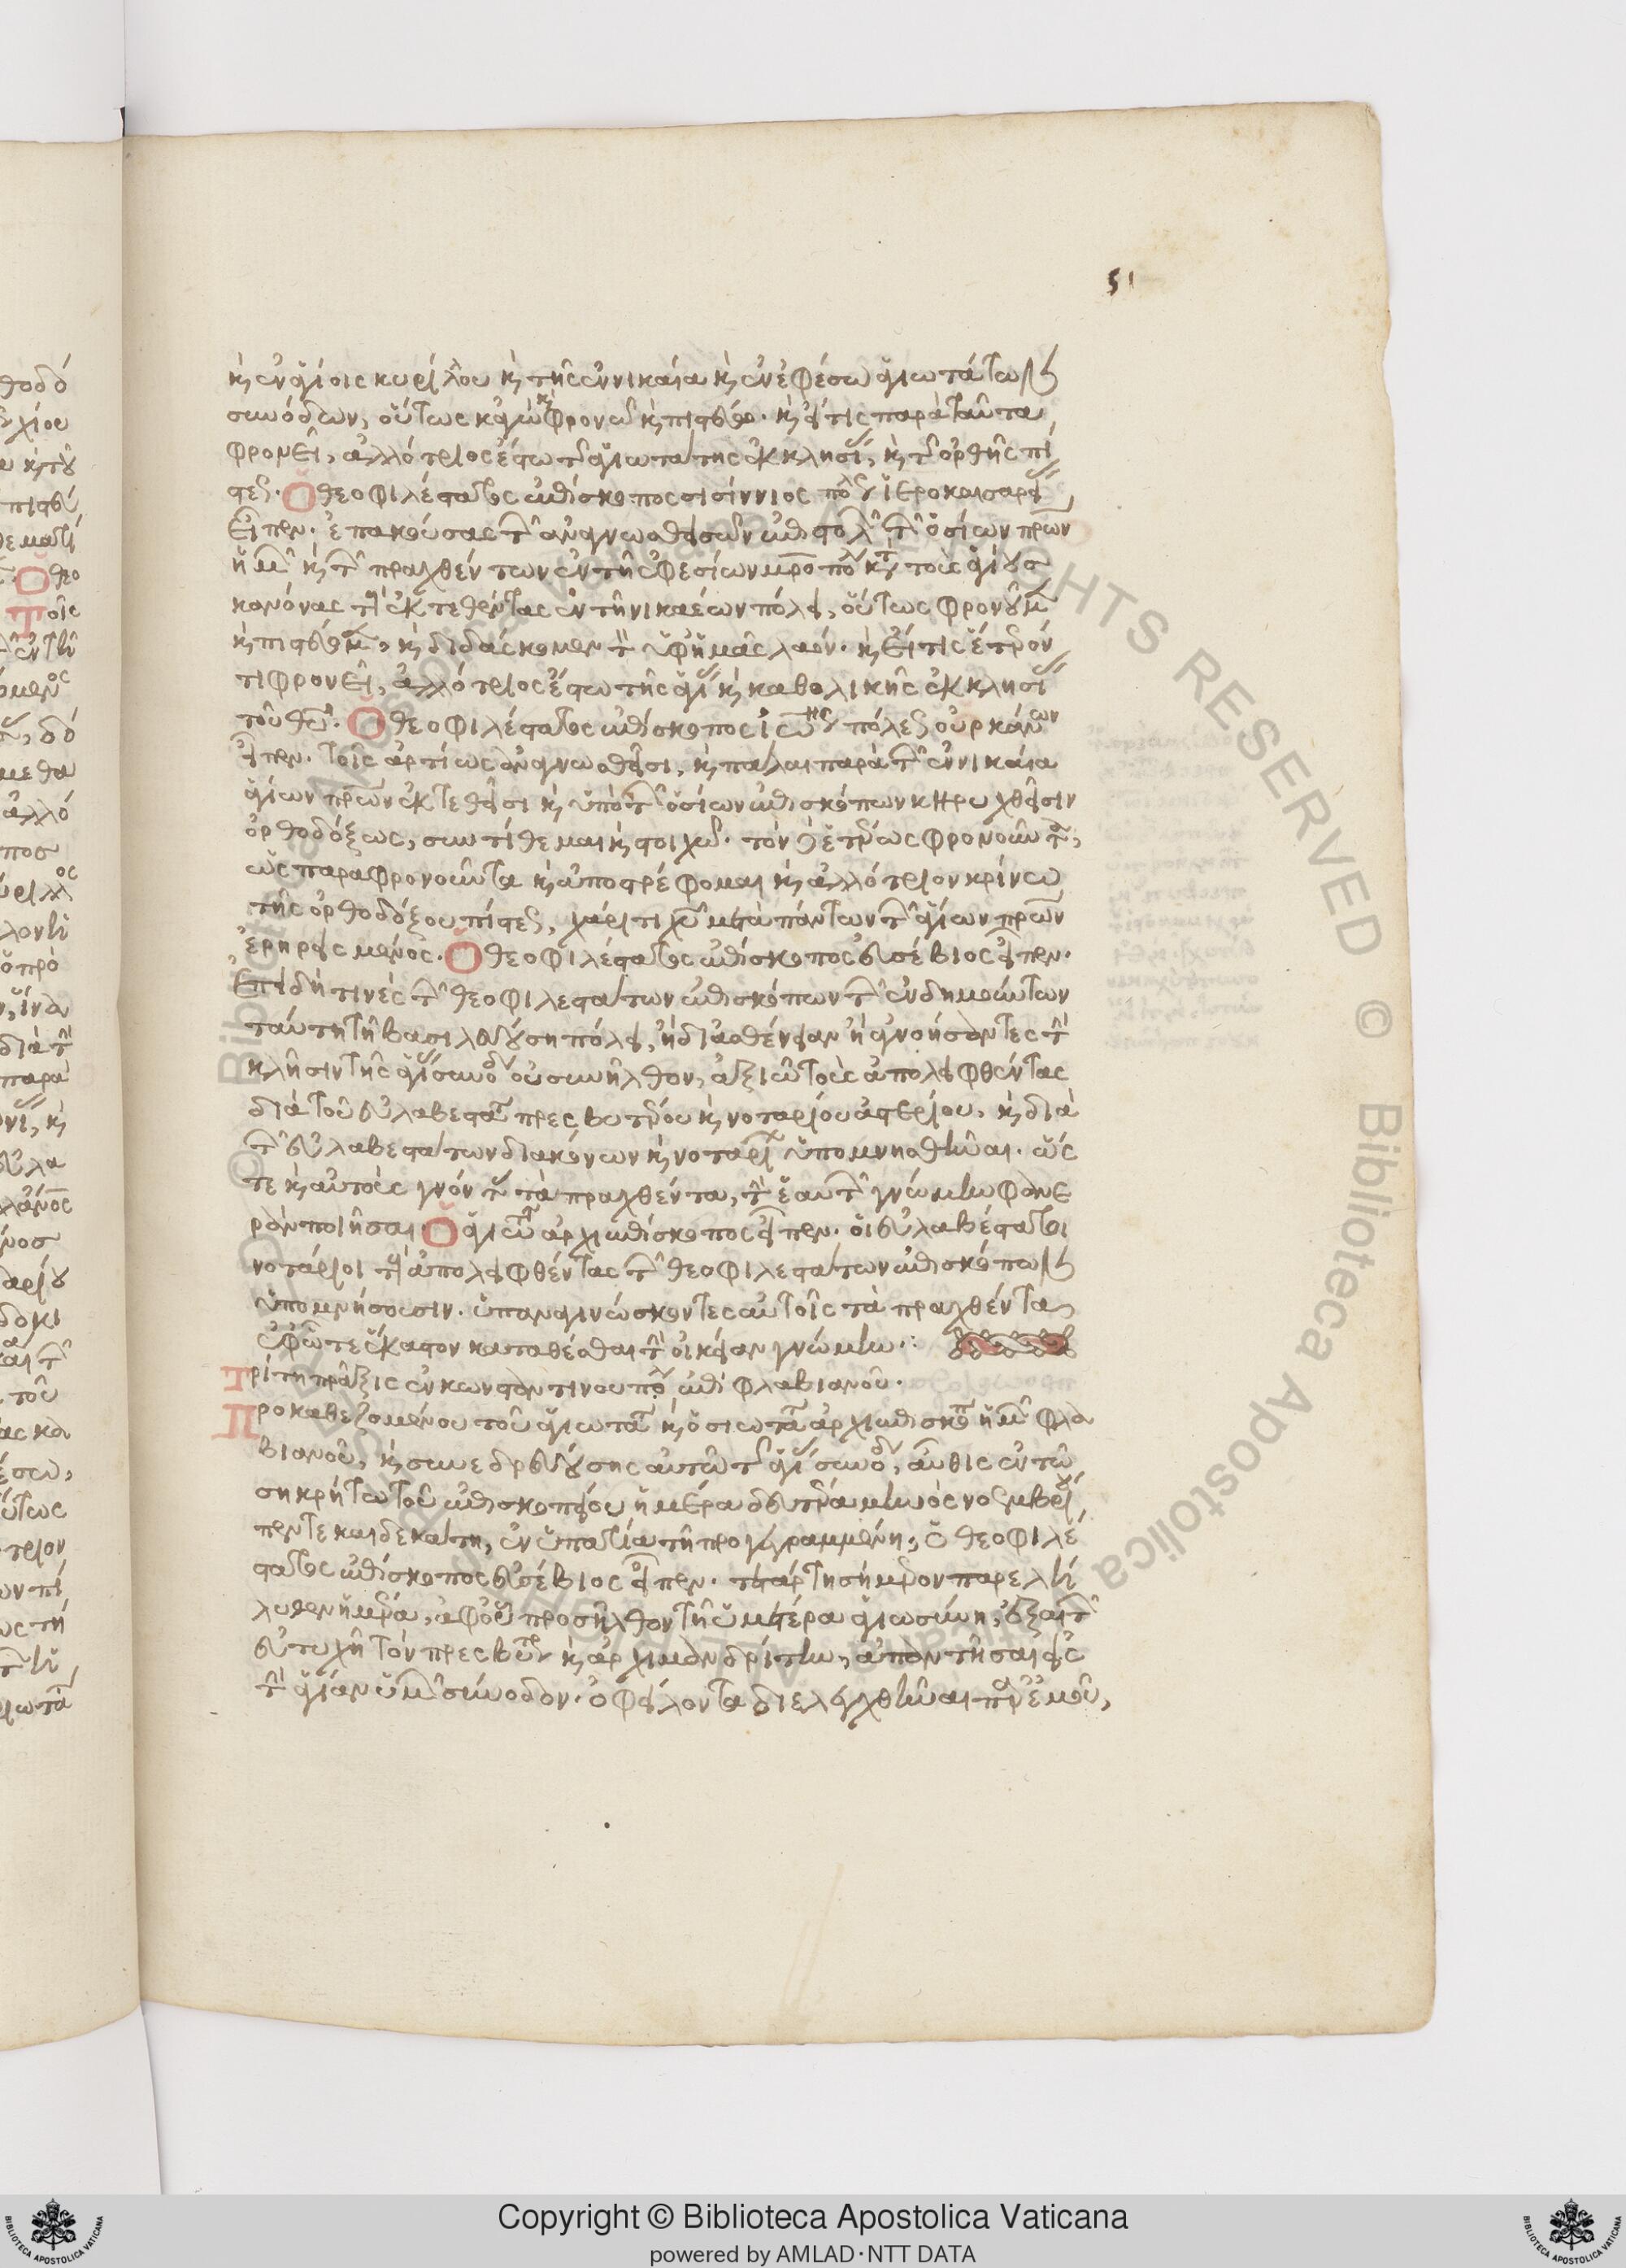 51
κ(αὶ) ἐν ἁγίοις κυρίλλου κ(αὶ) τῆς ἐν νικαία κ(αὶ) ἐν ἐφέσω ἁγιωτάτων
συνόδων, οὕτως κἀγὼ κ(αὶ) φρονῶ κ(αὶ) πιστεύω. κ(αὶ) εἴ τις παρὰ ταῦτα
φρονεῖ, ἀλλότριος ἔστω τῆς ἁγιωτάτης ἐκκλησίας, κ(αὶ) τῆς ὀρθῆς πί
στεως. Ὁ θεοφιλέστατος ἐπίσκοπος σισίννιος πόλεως ἱεροκαισαρείας
εἶπεν. ἐπακούσας τῶν ἀναγνωσθεισῶν ἐπιστολῶν τῶν ὁσίων πρων
ἡμῶν κ(αὶ) τῶν πραχθέντων ἐν τῆ ἐφεσίων μροπόλει κατὰ τοὺς ἁγίους
κανόνας τοὺς ἐκτεθέντας ἐν τῆ νικαέων πόλει, οὕτως φρονοῦμεν
κ(αὶ) πιστεύομεν, κ(αὶ) διδάσκομεν τὸν ὑφ' ἡμᾶς λαόν. κ(αὶ) εἴ τις ἕτερόν
τι φρονεῖ, ἀλλότριος ἔστω τῆς ἁγίας κ(αὶ) καθολικῆς ἐκκλησίας
τοῦ θυ. Ὁ θεοφιλέστατος ἐπίσκοπος ἰωάννης πόλεως οὑρκάνων
εἶπεν. τοῖς ἀρτίως ἀναγνωσθεῖσι, κ(αὶ) πάλαι παρὰ τῶν ἐν νικαία
ἁγίων πρων ἐκτεθεῖσι κ(αὶ) ὑπὸ τῶν ὁσίων ἐπισκόπων κηρυχθεῖσιν
ὀρθοδόξως, συντίθεμαι κ(αὶ) στοιχῶ. τὸν δὲ ἑτέρως φρονοῦντα,
ὡς παραφρονοῦντα κ(αὶ) ἀποστρέφομαι κ(αὶ) ἀλλότριον κρίνω
τῆς ὀρθοδόξου πίστεως, χάριτι χυ μετὰ πάντων τῶν ἁγίων πρων
ἐρηρεισμένος. Ὁ θεοφιλέστατος ἐπίσκοπος εὐσέβιος εἶπεν.
Ἐπειδή τινες τῶν θεοφιλεστάτων ἐπισκόπων τῶν ἐνδημούντων
ταύτη τῆ βασιλευούση πόλει, ἢ δι' ἀσθένειαν ἢ ἀγνοήσαντες τὴν
κλῆσιν τῆς ἁγίας συνόδου οὐ συνῆλθον, ἀξιῶ τοὺς ἀπολειφθέντας
διὰ τοῦ εὐλαβεστάτου πρεσβυτέρου κ(αὶ) νοταρίου ἀστερίου, κ(αὶ) διὰ
τῶν εὐλαβεστάτων διακόνων κ(αὶ) νοταρίων ὑπομνησθῆναι. ὥς
τε κ(αὶ) αὐτοὺς γνόντας τὰ πραχθέντα, τὴν ἑαυτῶν γνώμην φανε
ρὰν ποιῆσαι. Ὁ ἁγιώτατος ἀρχιεπίσκοπος εἶπεν. οἱ εὐλαβέστατοι
νοτάριοι τοὺς ἀπολειφθέντας τῶν θεοφιλεστάτων ἐπισκόπων
ὑπομνήσουσιν. ὑπαναγινώσκοντες αὐτοῖς τὰ πραχθέντα,
ἐφ' ὧτε ἕκαστον καταθέσθαι τὴν οἰκείαν γνώμην.
Τρίτη πρᾶξις ἐν κωνσταντινουπόλει ἐπὶ φλαβιανοῦ.
Προκαθεζομένου τοῦ ἁγιωτάτου κ(αὶ) ὁσιωτάτου ἀρχιεπισκόπου ἡμῶν φλα
βιανοῦ, κ(αὶ) συνεδρευούσης αὐτῶ τῆς ἁγίας συνόδου, αὖθις ἐν τῶ
σηκρήτω τοῦ ἐπισκοπείου ἡμέρα δευτέρα μηνὸς νοεμβρίου
πεντεκαιδεκάτη, ἐν ὑπατία τῆ προγεγραμμένη, ὁ θεοφιλέ
στατος ἐπίσκοπος εὐσέβιος εἶπεν. τετάρτη σήμερον παρελή
λυθεν ἡμέρα, ἀφ' οὗ προσῆλθον τῆ ὑμετέρα ἁγιωσύνη, ὥστε
εὐτυχῆ τὸν πρεσβύτερον κ(αὶ) ἀρχιμανδρίτην, ἀπαντῆσαι εἰς
τὴν ἁγίαν ὑμῶν σύνοδον. ὀφείλοντα διελεγχθῆναι παρ' ἐμοῦ,